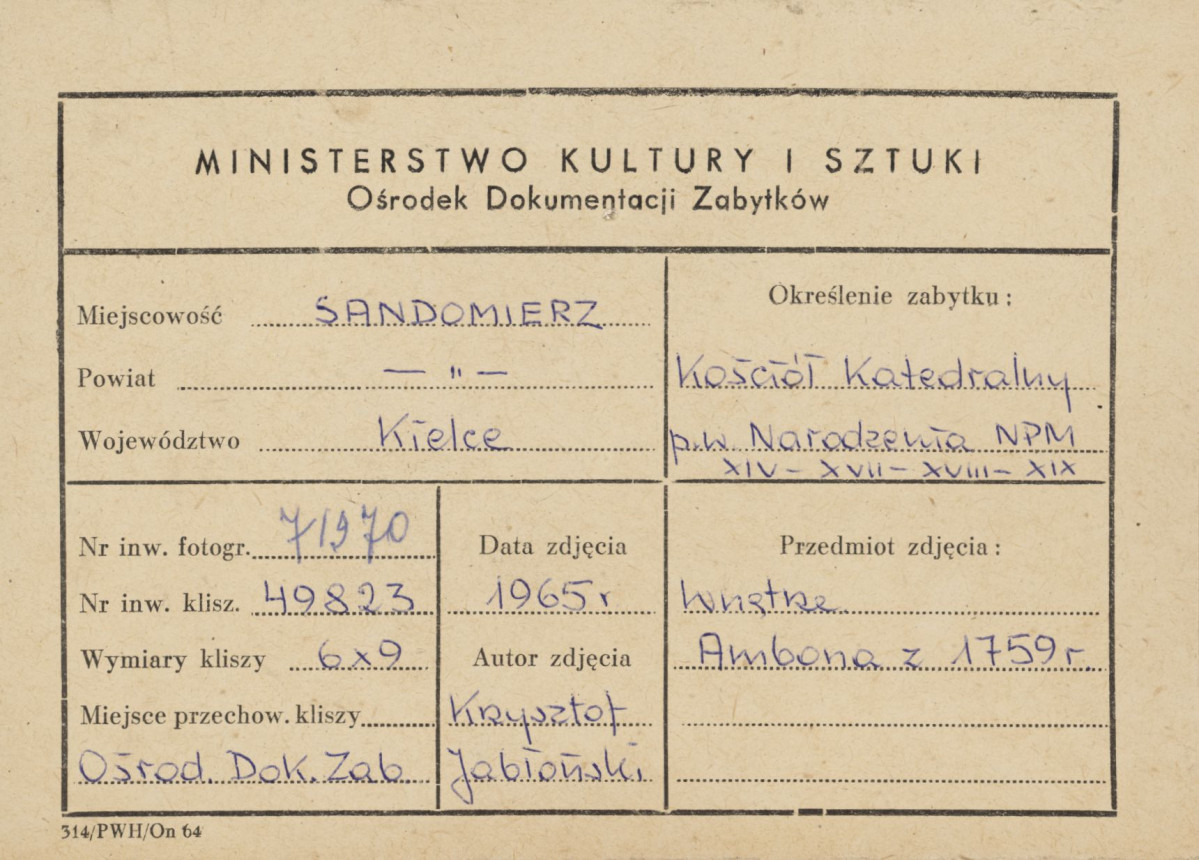 MINISTERSTWO KULTURY I SZTUKI
Ośrodek Dokumentacji Zabytków
Miejscowość SANDOMIERZ
Powiat — " —
Województwo Kielce
Określenie zabytku:
Kościół Katedralny
p.w. Narodzenia NPM
XIV - XVII - XVIII - XIX
Nr inw. fotogr. 71970
Nr inw. klisz. 49823
Wymiary kliszy 6x9
Miejsce przechow. kliszy
Ośrod. Dok. Zab.
Data zdjęcia
1965 r
Autor zdjęcia
Krzysztof
Jabłoński
Przedmiot zdjęcia:
Wnętrze
Ambona z 1759 r.
314/PWH/On 64